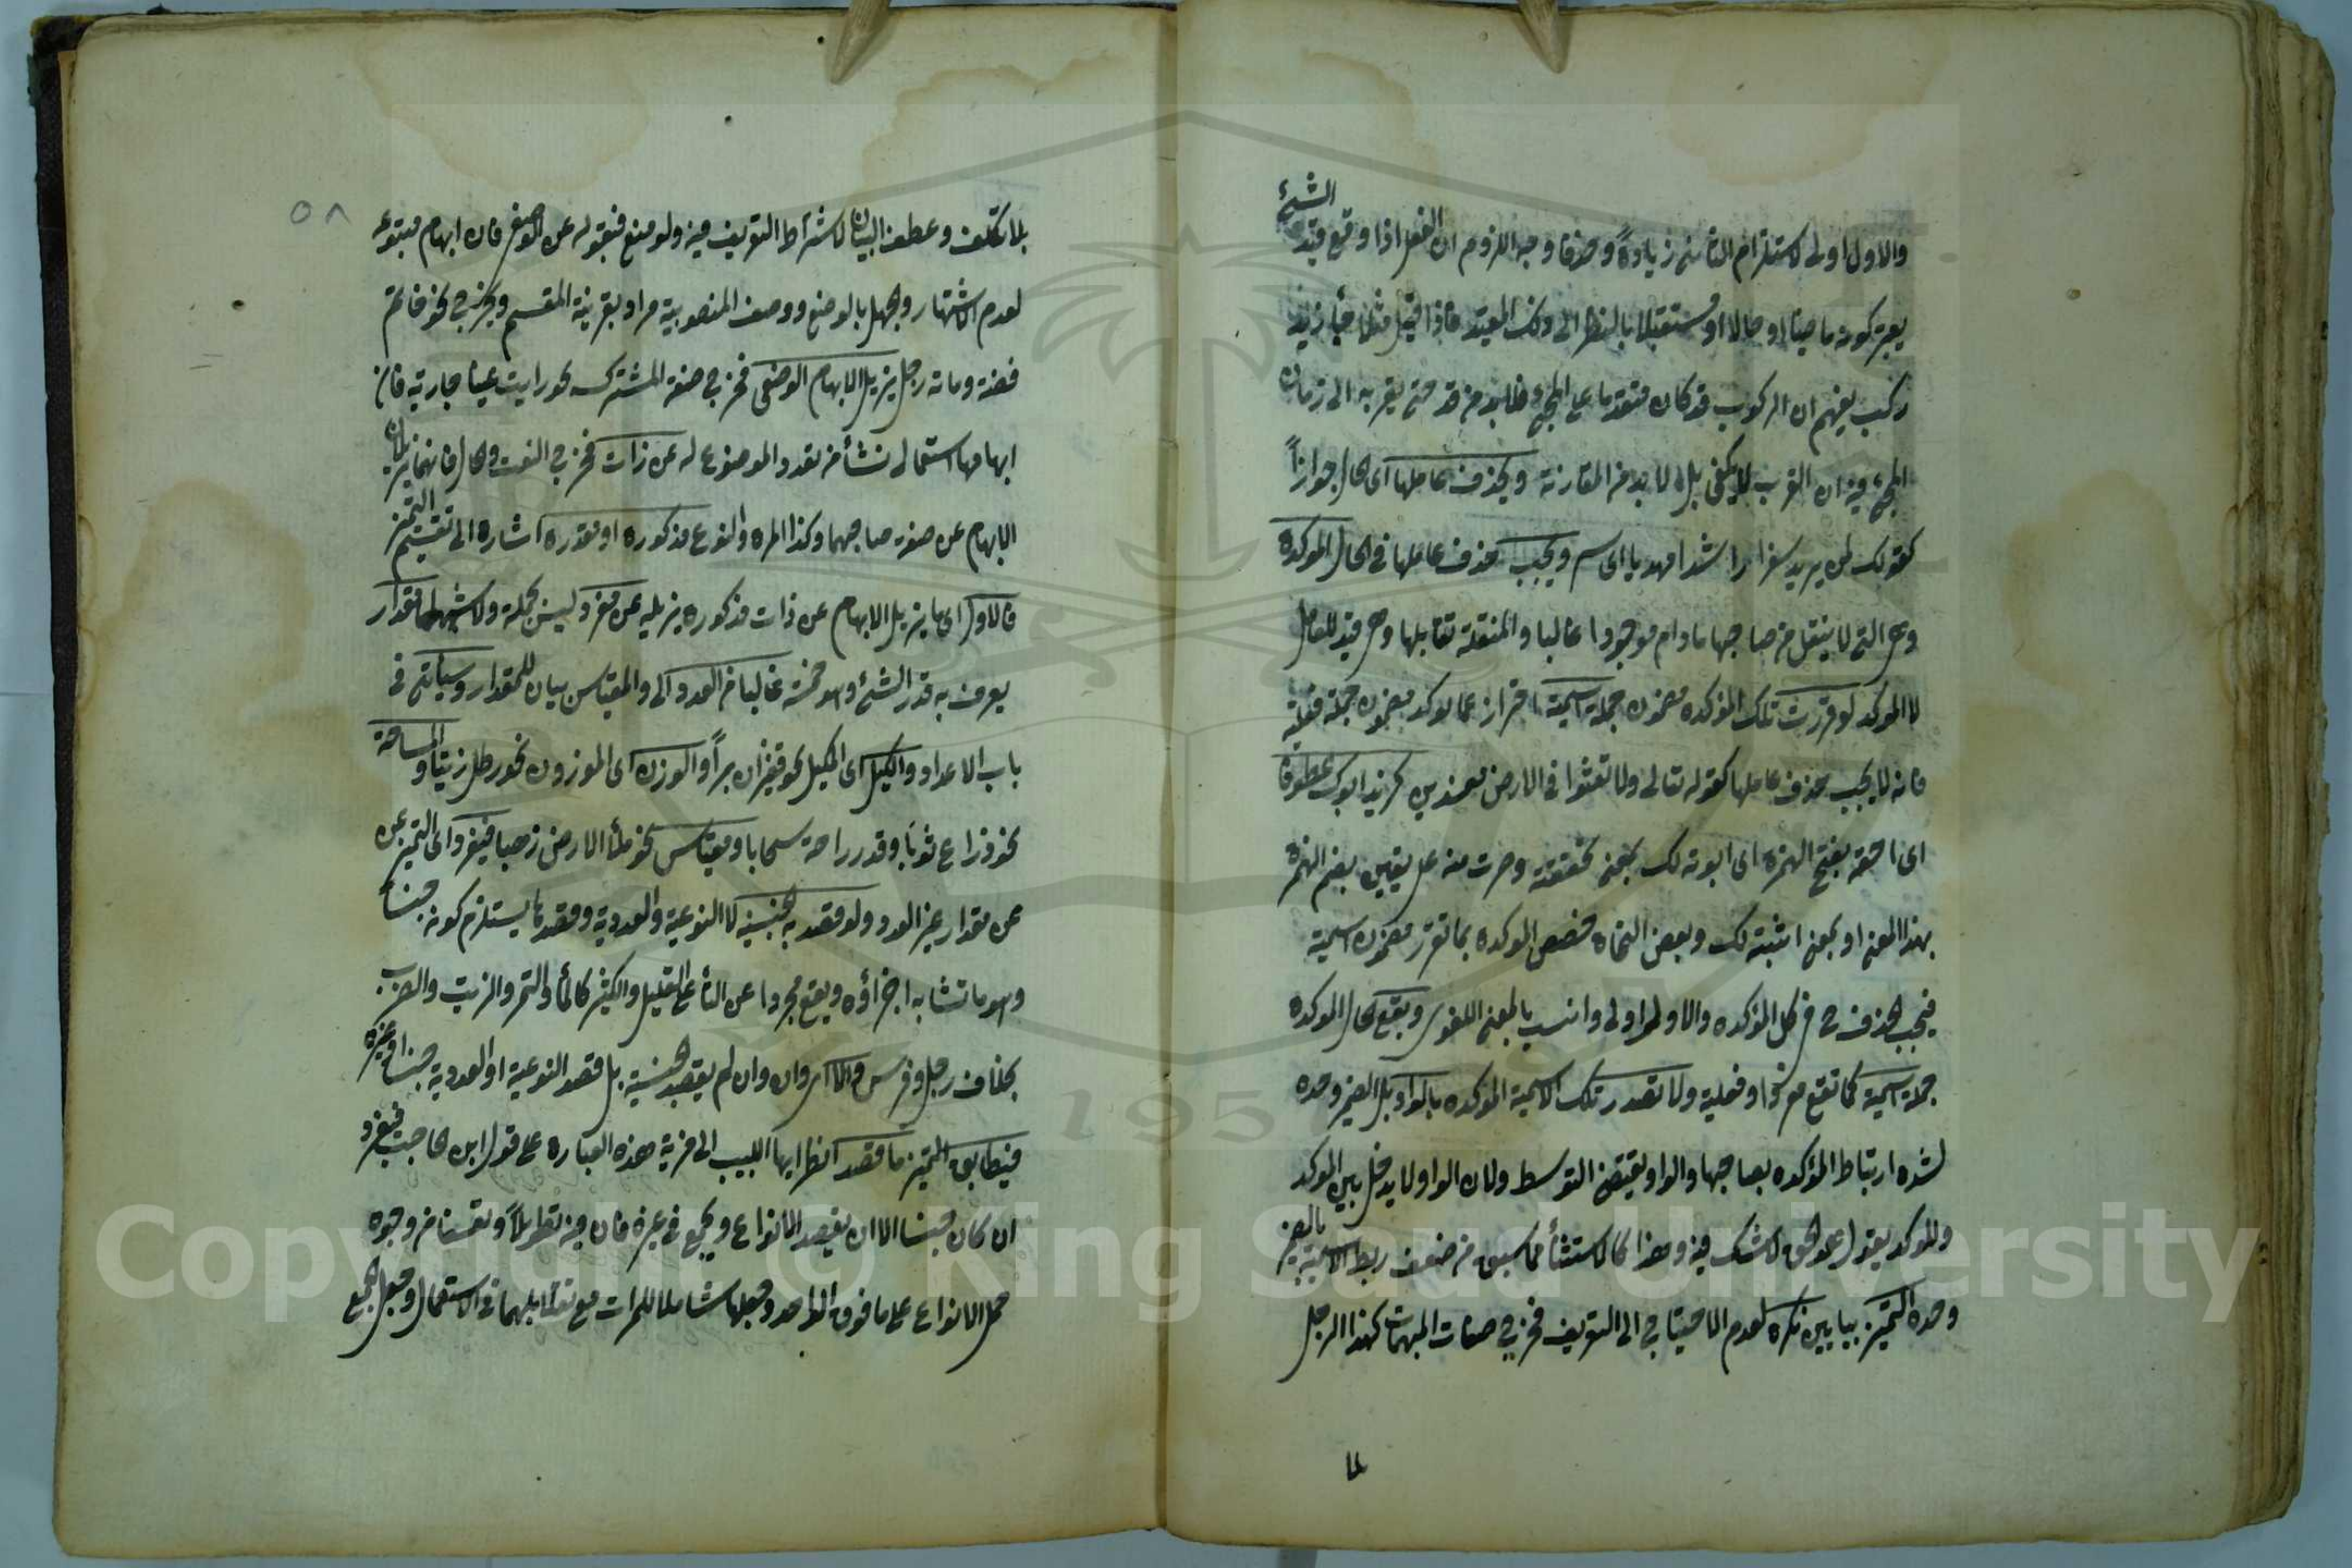 الشئ
والاول اولى لاستلزام الثانى زيادةً وحذفا وجه اللزوم ان الفعل اذا وقع قيد
يعتبر كونه ماضيا او حالا او مستقبلا بالنظر الى ذلك المقيد فاذا قيل مثلا جاء زيد
ركب يفهم ان الركوب قد كان متقدما على المجئ فلا بد من قد حتى يقربه الى زمان
المجئ فيه ان القرب لا يكفى بل لا بد من المقارنة ويحذف عاملها اى الحال جوازاً
كقولك لمن يريد سفرا راشدا مهديا اى سر ويجب حذف عاملها فى الحال المؤكدة
وهى التى لا ينتقل من صاحبها مادام موجودا غالبا والمنتقلة تقابلها وهى قيد للعامل
لا المؤكد لو قررت تلك المؤكده مضمون جملة اسمية احتراز عما يوكد مضمون جملة فعلية
فانه لا يجب حذف عاملها كقوله تعالى ولا تعثوا فى الارض مفسدين كزيد ابوك عطوفا
اى احقه بفتح الهمزة اى ابوته لك بمعنى تحققته وصرت منه على يقين بضم الهمزة
بهذا المعنى او بمعنى اثبته لك وبعض النحاة خصص المؤكده بما تقرر مضمون اسمية
فيجب الحذف ح فى كل المؤكده والاول اولى وانسب بالمعنى اللغوى ويقع الحال المؤكده
جملة اسمية كما تقع مفردا وفعلية ولا تصدر تلك الاسمية المؤكده بالواو بل الضمير وحده
لشده ارتباط المؤكده بصاحبها والواو يقتضى التوسط ولان الواو لا يدخل بين المؤكد
والمؤكد يقول هو الحق لا شك فيه وهذا كالاستثناء مما سبق من ضعف ربط الاسمية بالضمير
وحده التمييز بيائين نكره لعدم الاحتياج الى التعريف فخرج صفات المبهمات كهذا الرجل
٥٨
بلا تكلف وعطف البيان لاشتراط التعريف فيه ولو منع فبقوله عن الوضعى فان ابهام متبوعه
لعدم الاشتهار وجهل بالوضع ووصف المنصوبية مراد بقرينة المقسم ويخرج نحو خاتم
فضة ومائة رجل يزيل الابهام الوضعى فخرج صفة المشترك نحو رايت عينا جارية فان
ابهامها استعمالى نشأ من تعدد الموضوع له عن ذات فخرج النعت والحال فانهما يزيلان
الابهام عن صفة صاحبهما وكذا المره والنوع مذكوره او مقدره اشارة الى تقسيم التمييز
فالاول اى ما يزيل الابهام عن ذات مذكوره يزيله عن مفرد ليس بجملة ولا شبهها مقدار
يعرف به قدر الشئ وهو خمسة غالبا من العدد الى والمقياس بيان للمقدار وسيأتى فى
باب الاعداد والكيل اى المكيل نحو قفيزان براً والوزن اى الموزون نحو رطل زيتا والمساحة
نحو ذراع ثوبا وقدر راحة سحابا ومقياس نحو ملأ الارض ذهبا فيفرد اى التمييز عن
عن مقدار غير العدد ولو قصد به الجنسية لا النوعية والعددية وقصدها يستلزم كونه جنساً
وهو ما تشابه اجزاؤه ويقع مجردا عن التاء على القليل والكثير كالماء والتمر والزيت والضرب
بخلاف رجل وفرس والا اى وان وان لم يقصد الجنسية بل قصد النوعية او العددية جنسا وغيره
فيطابق التمييز ما قصد انظر ايها اللبيب الى مزية هذه العبارة على قول ابن الحاجب فيفرد
ان كان جنسا الا ان يقصد الانواع ويجمع فى غيره فان فيه تطويلاً وتعسفا من وجوه
حمل الانواع على ما فوق الواحد وجعلها شاملا للمرات مع تقابلهما فى الاستعمال وجعل الجمع